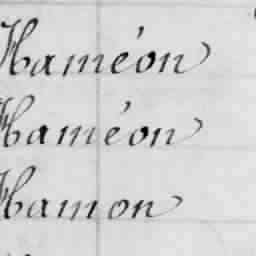 Haméon
Haméon
Hamon